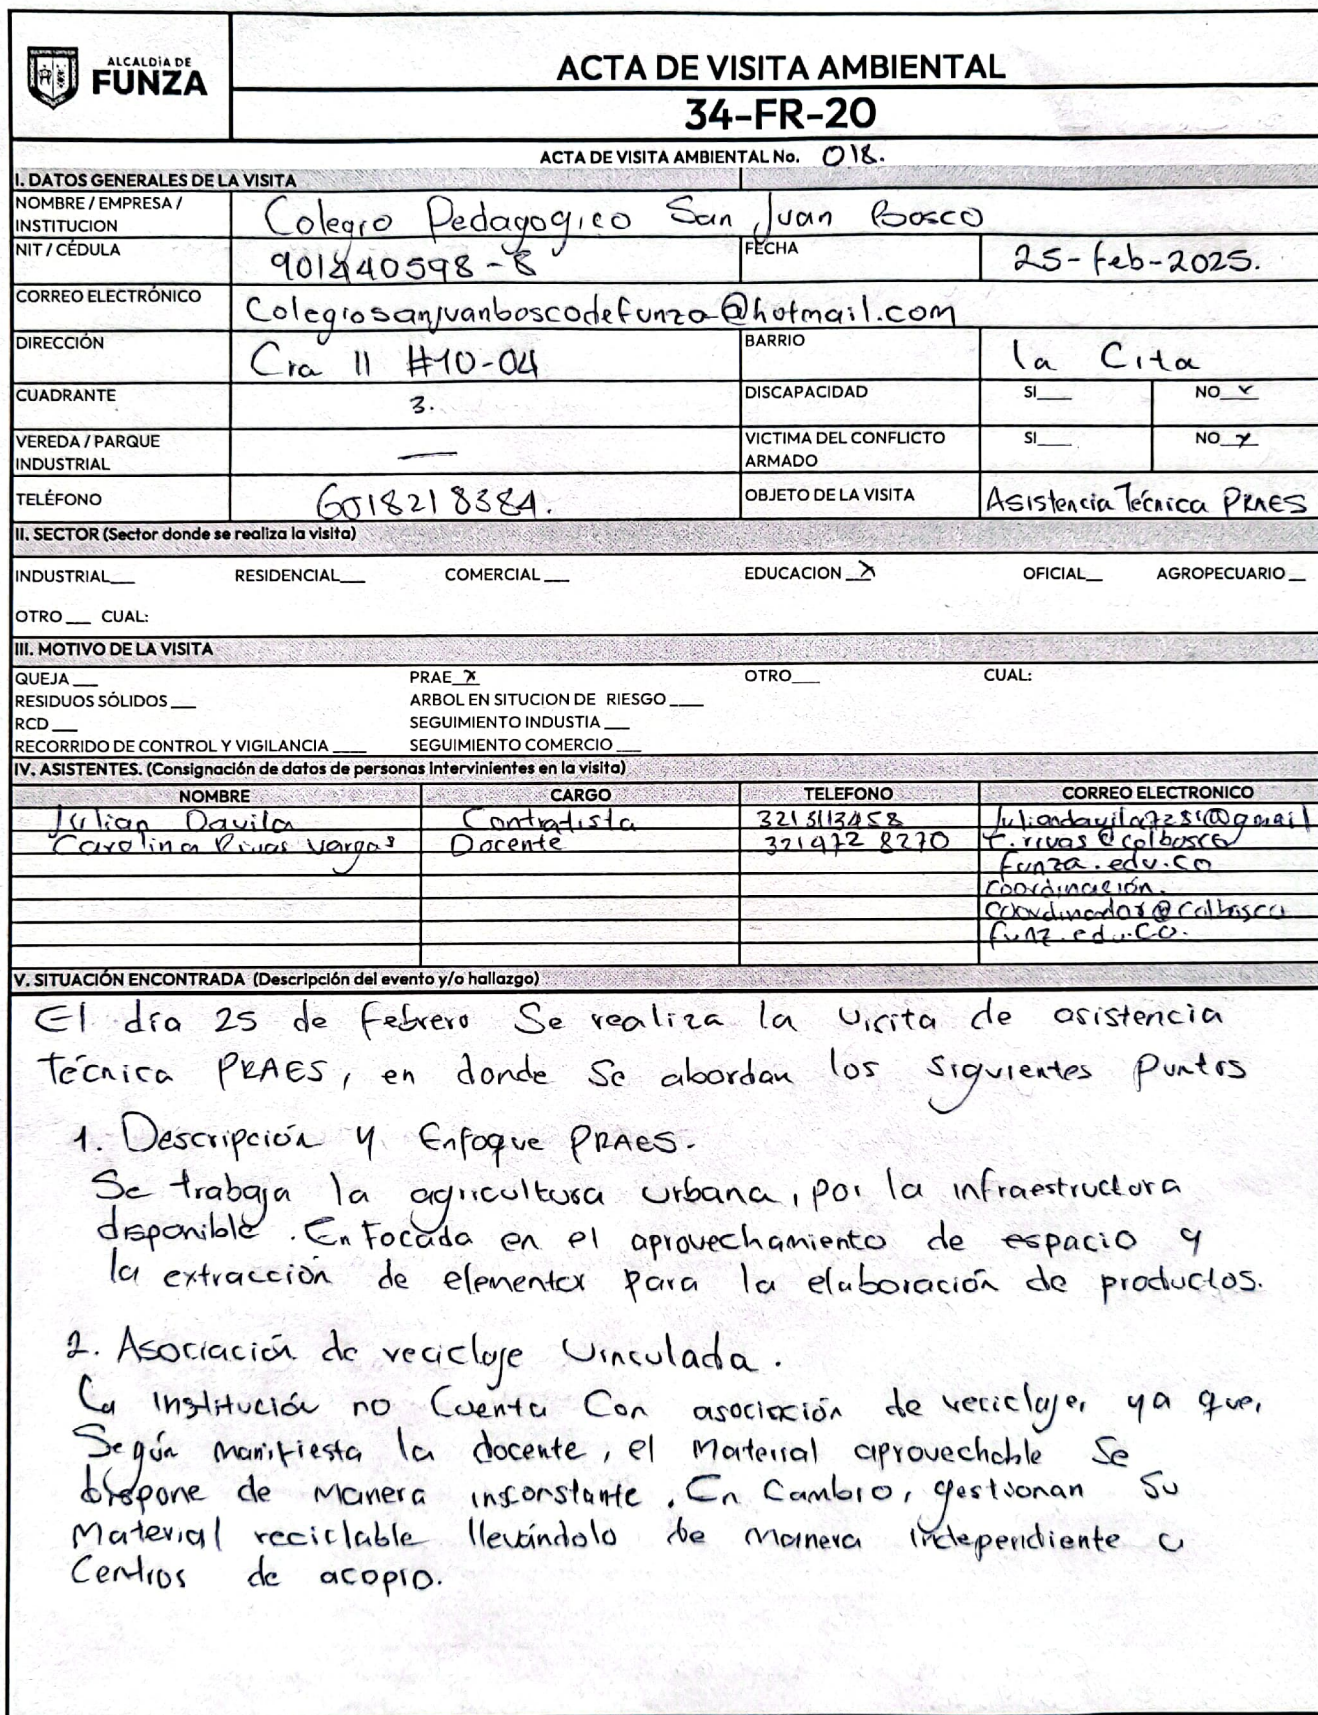 ALCALDÍA DE
FUNZA
ACTA DE VISITA AMBIENTAL
34-FR-20
ACTA DE VISITA AMBIENTAL No. 018.
I. DATOS GENERALES DE LA VISITA
NOMBRE / EMPRESA / INSTITUCION Colegio Pedagogico San Juan Bosco
NIT / CÉDULA 901440598-8 FECHA 25-feb-2025.
CORREO ELECTRÓNICO Colegiosanjuanboscodefunza@hotmail.com
DIRECCIÓN Cra 11 #10-04 BARRIO la Cita
CUADRANTE 3. DISCAPACIDAD SI___ NO_x
VEREDA / PARQUE INDUSTRIAL — VICTIMA DEL CONFLICTO ARMADO SI___ NO_x
TELÉFONO 6018218384. OBJETO DE LA VISITA Asistencia Técnica PRAES
II. SECTOR (Sector donde se realiza la visita)
INDUSTRIAL___ RESIDENCIAL___ COMERCIAL___ EDUCACION_X OFICIAL__ AGROPECUARIO__
OTRO___ CUAL:
III. MOTIVO DE LA VISITA
QUEJA___ PRAE_X OTRO___ CUAL:
RESIDUOS SÓLIDOS___ ARBOL EN SITUCION DE RIESGO____
RCD___ SEGUIMIENTO INDUSTIA___
RECORRIDO DE CONTROL Y VIGILANCIA____ SEGUIMIENTO COMERCIO___
IV. ASISTENTES. (Consignación de datos de personas intervinientes en la visita)
NOMBRE CARGO TELEFONO CORREO ELECTRONICO
Julian Davila Contratista 3213113458
Carolina Rivas Vargas Docente 321972 8270 c.rivas@colbosco
funza.edu.co
coordinación.
coordinador@colbosco
funz.edu.co.
V. SITUACIÓN ENCONTRADA (Descripción del evento y/o hallazgo)
El día 25 de febrero Se realiza la visita de asistencia
técnica PRAES, en donde se abordan los siguientes puntos
1. Descripción y Enfoque PRAES.
Se trabaja la agricultura urbana, por la infraestructura
disponible. Enfocada en el aprovechamiento de espacio y
la extracción de elementos para la elaboración de productos.
2. Asociación de reciclaje vinculada.
La institución no Cuenta Con asociación de reciclaje, ya que,
Según manifiesta la docente, el Material aprovechable Se
dispone de manera inconstante. En Cambio, gestionan su
Material reciclable llevándolo de manera independiente a
Centros de acopio.